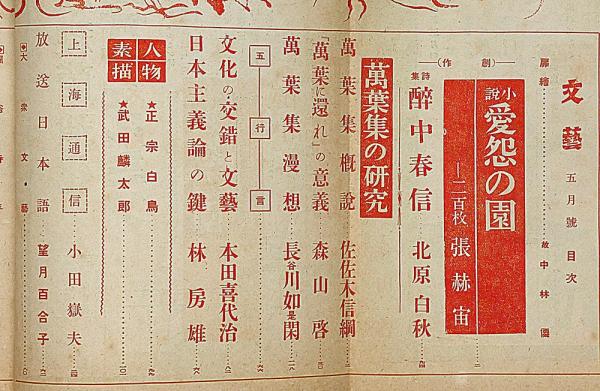 文藝 五月號 目次
扉繪 故中林僊
―(創作)―
小說 愛怨の園 ―二百枚 張赫宙
詩集 醉中春信 北原白秋
萬葉集の研究
萬葉集槪說 佐佐木信綱
「萬葉に還れ」の意義 森山啓
萬葉集漫想 長谷川如是閑
五行言
文化の交錯と文藝 本田喜代治
日本主義論の鍵 林房雄
人物素描
★正宗白鳥
★武田麟太郎
上海通信 小田嶽夫
放送日本語 望月百合子
大衆文藝